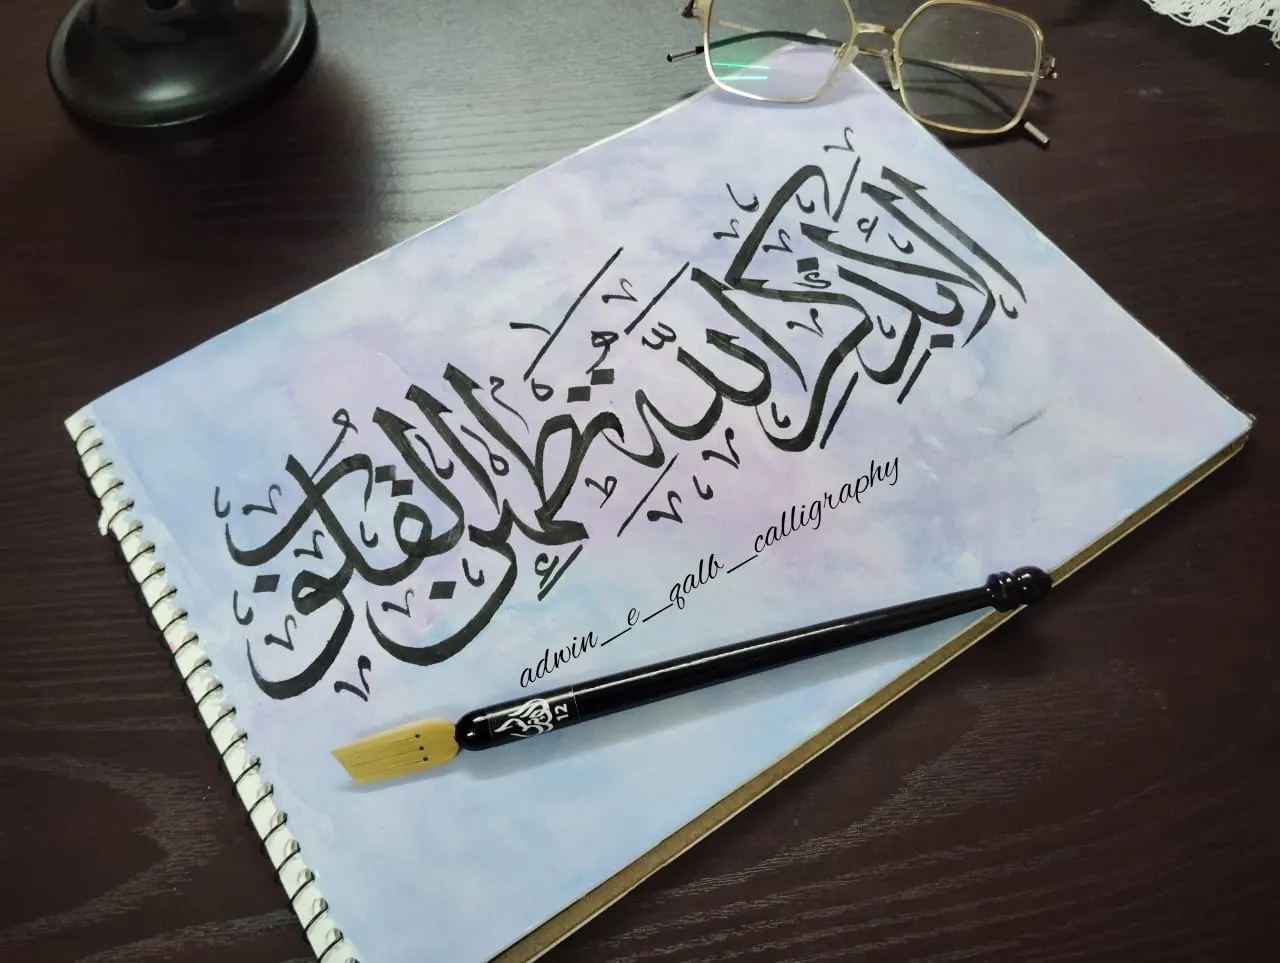 ألا بذكر الله تطمئن القلوب
adwin_e_qalb_calligraphy
12